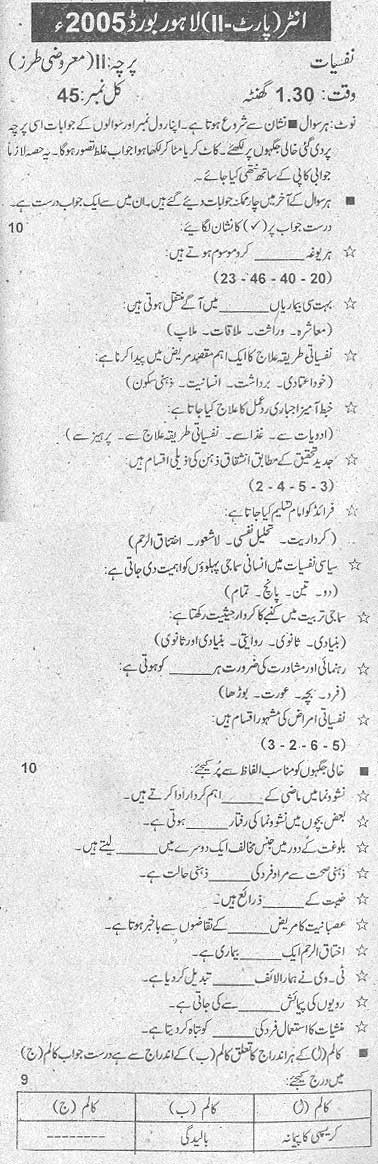 انٹر (پارٹ-II) لاہور بورڈ 2005ء
نفسیات پرچہ: II (معروضی طرز)
وقت: 1.30 گھنٹہ کل نمبر: 45
نوٹ: ہر سوال ■ نشان سے شروع ہوتا ہے۔ اپنا رول نمبر اور سوالوں کے جوابات اسی پرچہ
پر دی گئی خالی جگہوں پر لکھئے۔ کاٹ کر یا مٹا کر لکھا ہوا جواب غلط تصور ہوگا۔ یہ حصہ لازماً
جوابی کاپی کے ساتھ نتھی کیا جائے۔
■ ہر سوال کے آخر میں چار ممکنہ جوابات دیئے گئے ہیں۔ ان میں سے ایک جواب درست ہے۔
درست جواب پر (✓) کا نشان لگائیے: 10
☆ ہر یوغہ ______ کروموسوم ہوتے ہیں:
(20 - 40 - 46 - 23)
☆ بہت سی بیماریاں ______ میں آگے منتقل ہوتی ہیں:
(معاشرہ۔ وراثت۔ ملاقات۔ ملاپ)
☆ نفسیاتی طریقہ علاج کا ایک اہم مقصد مریض میں پیدا کرنا ہے:
(خود اعتمادی۔ برداشت۔ انسانیت۔ ذہنی سکون)
☆ خبط آمیز اجباری ردعمل کا علاج کیا جاتا ہے:
(ادویات سے۔ غذا سے۔ نفسیاتی طریقہ علاج سے۔ پرہیز سے)
☆ جدید تحقیق کے مطابق انشقاق ذہن کی ذیلی اقسام ہیں:
(3 - 5 - 4 - 2)
☆ فرائڈ کو امام تسلیم کیا جاتا ہے:
(کرداریت۔ تحلیل نفسی۔ لاشعور۔ اختناق الرحم)
☆ سیاسی نفسیات میں انسانی سماجی پہلوؤں کو اہمیت دی جاتی ہے:
(دو۔ تین۔ پانچ۔ تمام)
☆ سماجی تربیت میں کنبے کا کردار حیثیت رکھتا ہے:
(بنیادی۔ ثانوی۔ روایتی۔ بنیادی اور ثانوی)
☆ رہنمائی اور مشاورت کی ضرورت ہر ______ کو ہوتی ہے:
(فرد۔ بچہ۔ عورت۔ بوڑھا)
☆ نفسیاتی امراض کی مشہور اقسام ہیں:
(5 - 6 - 2 - 3)
■ خالی جگہوں کو مناسب الفاظ سے پُر کیجئے: 10
☆ نشوونما میں ماضی کے ______ اہم کردار ادا کرتے ہیں۔
☆ بعض بچوں میں نشوونما کی رفتار ______ ہوتی ہے۔
☆ بلوغت کے دور میں جنس مخالف ایک دوسرے میں ______ لیتے ہیں۔
☆ ذہنی صحت سے مراد فرد کی ______ ذہنی حالت ہے۔
☆ غیبت کے ______ ذرائع ہیں۔
☆ عصبانیت کا مریض ______ کے تقاضوں سے باخبر ہوتا ہے۔
☆ اختناق الرحم ایک ______ بیماری ہے۔
☆ ٹی۔وی نے ہمارا لائف ______ تبدیل کر دیا ہے۔
☆ رویوں کی پیمائش ______ سے کی جاتی ہے۔
☆ منشیات کا استعمال فرد کی ______ کو کوتاہ کر دیتا ہے۔
■ کالم (ا) کے ہر اندراج کا تعلق کالم (ب) کے اندراج سے ہے درست جواب کالم (ج)
میں درج کیجئے: 9
کالم (ا) کالم (ب) کالم (ج)
کریسپی کا پیمانہ بالیدگی --------